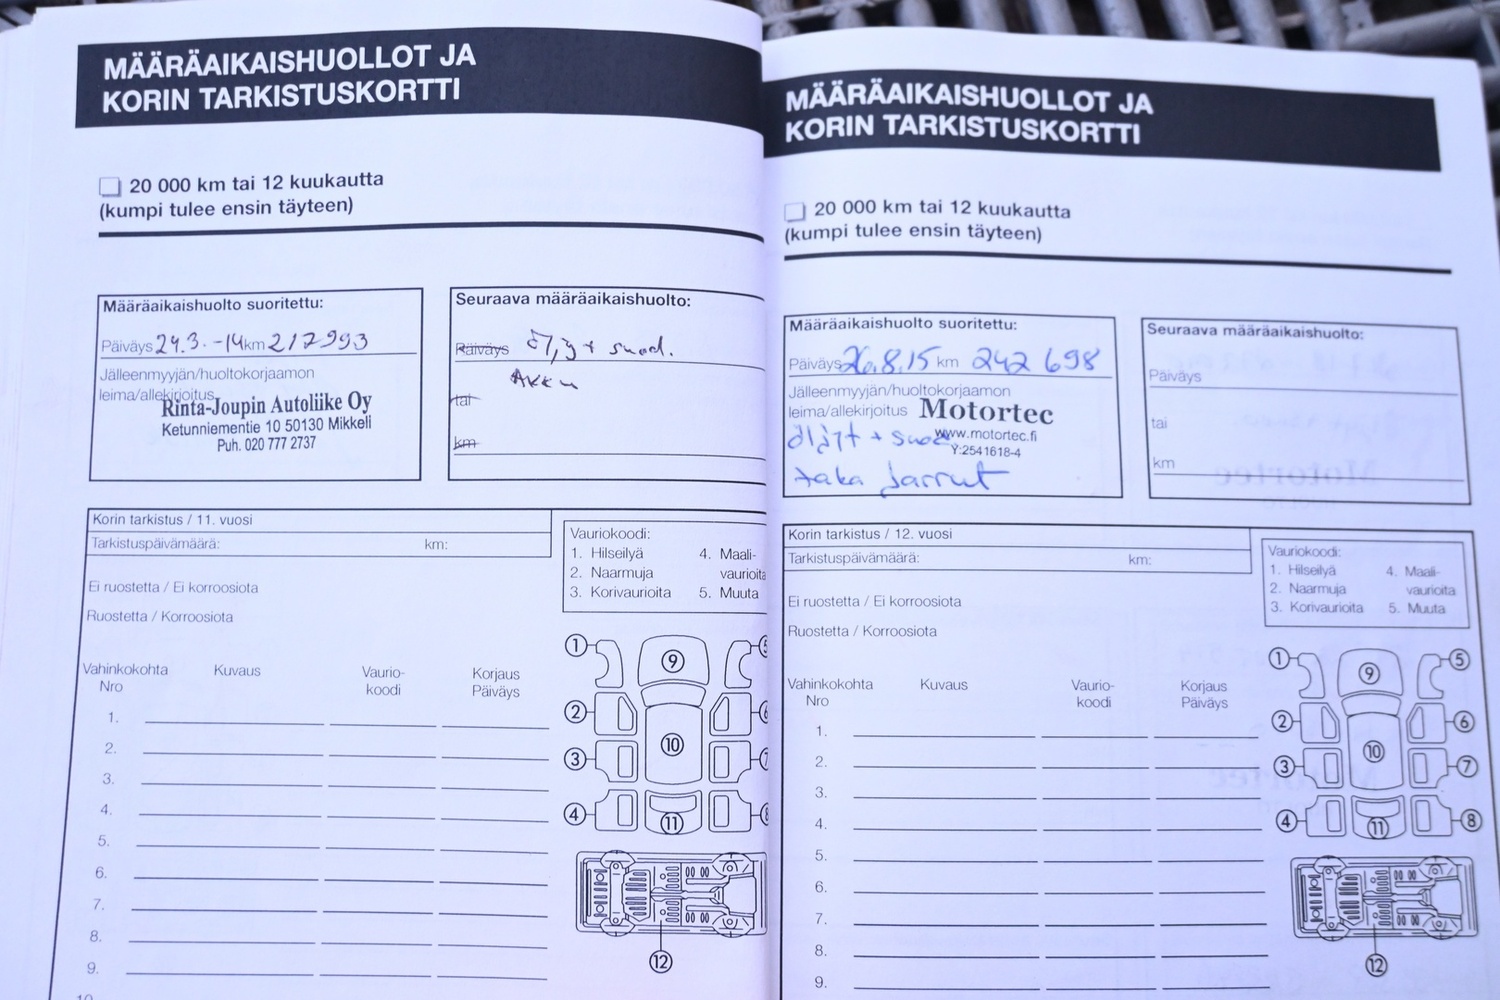 MÄÄRÄAIKAISHUOLLOT JA
KORIN TARKISTUSKORTTI
20 000 km tai 12 kuukautta
(kumpi tulee ensin täyteen)
Määräaikaishuolto suoritettu:
Päiväys 24.3.-14 km 217993
Jälleenmyyjän/huoltokorjaamon
leima/allekirjoitus
Rinta-Joupin Autoliike Oy
Ketunniementie 10 50130 Mikkeli
Puh. 020 777 2737
Seuraava määräaikaishuolto:
Päiväys öljy + suod.
Akku
tai
km
Korin tarkistus / 11. vuosi
Tarkistuspäivämäärä: km:
Ei ruostetta / Ei korroosiota
Ruostetta / Korroosiota
Vauriokoodi:
1. Hilseilyä 4. Maali-
2. Naarmuja vaurioita
3. Korivaurioita 5. Muuta
Vahinkokohta Kuvaus Vaurio- Korjaus
Nro koodi Päiväys
1.
2.
3.
4.
5.
6.
7.
8.
9.
10
1
2
3
4
5
6
7
8
9
10
11
12
MÄÄRÄAIKAISHUOLLOT JA
KORIN TARKISTUSKORTTI
20 000 km tai 12 kuukautta
(kumpi tulee ensin täyteen)
Määräaikaishuolto suoritettu:
Päiväys 26.8.15 km 242 698
Jälleenmyyjän/huoltokorjaamon
leima/allekirjoitus Motortec
www.motortec.fi
Y:2541618-4
öljyt + suod
taka jarrut
Seuraava määräaikaishuolto:
Päiväys
tai
km
Korin tarkistus / 12. vuosi
Tarkistuspäivämäärä: km:
Ei ruostetta / Ei korroosiota
Ruostetta / Korroosiota
Vauriokoodi:
1. Hilseilyä 4. Maali-
2. Naarmuja vaurioita
3. Korivaurioita 5. Muuta
Vahinkokohta Kuvaus Vaurio- Korjaus
Nro koodi Päiväys
1.
2.
3.
4.
5.
6.
7.
8.
9.
1
2
3
4
5
6
7
8
9
10
11
12